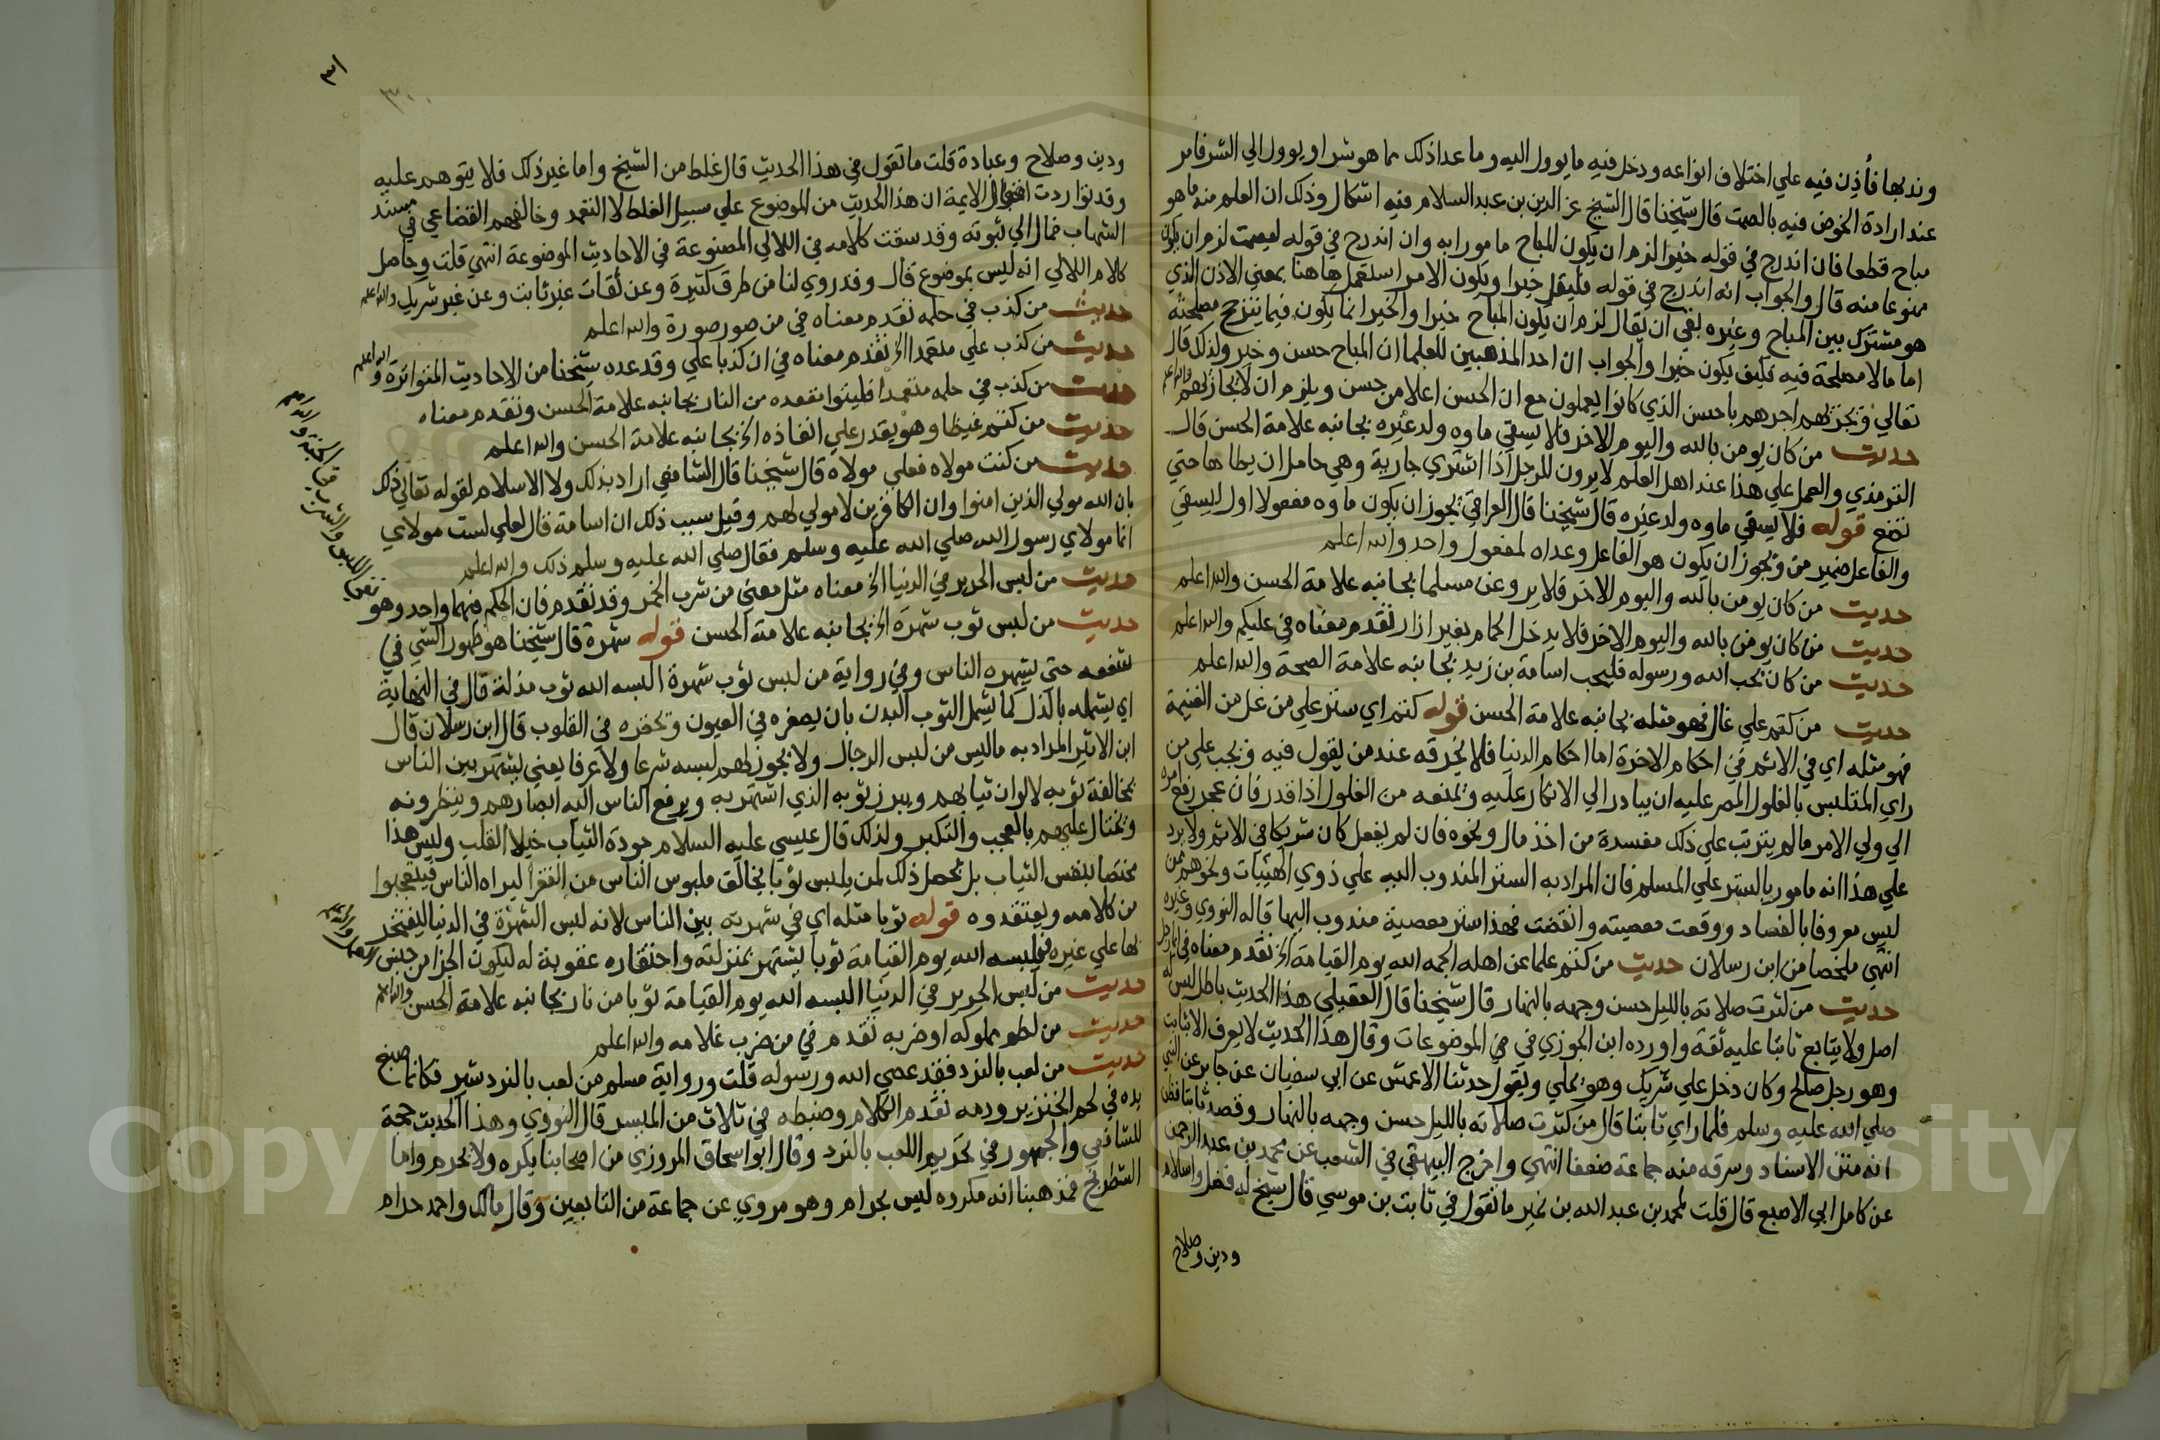 وندبها فأذن فيه علي اختلاف انواعه ودخل فيه ما يوول اليه وما عدا ذلك مما هو شر او يوول الي الشر فامر
عند ارادة الخوض فيه بالصمت قال شيخنا قال الشيخ عز الدين بن عبد السلام فيه اشكال وذلك ان العلم منه ما هو
مباح قطعا فان اندرج في قوله خيرا لزم ان يكون المباح مامورا به وان اندرج في قوله ليصمت لزم ان يكون
ممنوعا منه قال والجواب انه اندرج في قوله فليقل خيرا ويكون الامر استعمل هاهنا بمعني الاذن الذي
هو مشترك بين المباح وغيره بقي ان يقال لزم ان يكون المباح خيرا والخير انما يكون فيما يترجح مصلحته
اما ما لا مصلحة فيه فكيف يكون خيرا والجواب ان احد المذهبين للعلما ان المباح حسن وخير ولذلك قال
تعالي ونجزيهم اجرهم باحسن الذي كانوا يعملون مع ان الحسن اعلا من حسن ويلزم ان لا نجازيهم والله اعلم
حديث من كان يومن بالله واليوم الاخر فلا يسقي ماوه ولد غيره بجانبه علامة الحسن قال
الترمذي والعمل علي هذا عند اهل العلم لا يرون للرجل اذا اشتري جارية وهي حامل ان يطاها حتي
تضع قوله فلا يسقي ماوه ولد غيره قال شيخنا قال العراقي يجوز ان يكون ماوه مفعولا اول ليسقي
والفاعل ضمير من ويجوز ان يكون هو الفاعل وعداه لمفعول واحد والله اعلم
حديث من كان يومن بالله واليوم الاخر فلا يروعن مسلما بجانبه علامة الحسن والله اعلم
حديث من كان يومن بالله واليوم الاخر فلا يدخل الحمام بغير ازار تقدم معناه في عليكم والله اعلم
حديث من كان يحب الله ورسوله فليحب اسامة بن زيد بجانبه علامة الصحة والله اعلم
حديث من كتم علي غال فهو مثله بجانبه علامة الحسن قوله كتم اي ستر علي من غل من الغنيمة
فهو مثله اي في الاثم في احكام الاخرة اما احكام الدنيا فلا يحرقه عند من يقول فيه ويجب علي من
راي المتلبس بالغلول المصر عليه ان يبادر الي الانكار عليه ويمنعه من الغلول اذا قدر فان عجز رفع امره
الي ولي الامر ما لم يترتب علي ذلك مفسدة من اخذ مال ونحوه فان لم يفعل كان شريكا في الاثم ولا يرد
علي هذا انه مامور بالستر علي المسلم فان المراد به الستر المندوب اليه علي ذوي الهيئات ونحوهم ممن
ليس معروفا بالفساد ووقعت معصيته وانقضت فهذا ستر معصية مندوب اليها قاله النووي وغيره
انتهي ملخصا من ابن رسلان حديث من كتم علما عن اهله الجمه الله يوم القيامة الخ تقدم معناه في
حديث من كثرت صلاته بالليل حسن وجهه بالنهار قال شيخنا قال العقيلي هذا الحديث باطل ليس له
اصل ولا يتابع ثابتا عليه ثقة واورده ابن الجوزي في الموضوعات وقال هذا الحديث لا يعرف الا بثابت
وهو رجل صالح وكان دخل علي شريك وهو يملي ويقول حدثنا الاعمش عن ابي سفيان عن جابر عن النبي
صلي الله عليه وسلم فلما راي ثابتا قال من كثرت صلاته بالليل حسن وجهه بالنهار وقصد ثابتا فظن
انه متن الاسناد وسرقه منه جماعة ضعفا انتهي واخرج البيهقي في الشعب عن محمد بن عبد الرحمن
عن كامل ابي الاصبع قال قلت لمحمد بن عبد الله بن نمير ما تقول في ثابت بن موسي قال شيخ له فضل واسلام
ودين وصلاح
٣١
٣٠٠
ودين وصلاح وعبادة قلت ما تقول في هذا الحديث قال غلط من الشيخ واما غير ذلك فلا يتوهم عليه
وقد تواردت اقوال الايمة ان هذا الحديث من الموضوع علي سبيل الغلط لا التعمد وخالفهم القضاعي في مسند
الشهاب فمال الي ثبوته وقد سقت كلامه في اللالي المصنوعة في الاحاديث الموضوعة انتهي قلت وحاصل
كلام اللالي انه ليس بموضوع قال وقد روي لنا من طرق كثيرة وعن ثقات غير ثابت وعن غير شريك والله اعلم
حديث من كذب في حلمه تقدم معناه في من صور صورة والله اعلم
حديث من كذب علي متعمدا الخ تقدم معناه في ان كذبا علي وقد عده شيخنا من الاحاديث المتواترة والله اعلم
حديث من كذب في حلمه متعمدا فليتبوا مقعده من النار بجانبه علامة الحسن وتقدم معناه
حديث من كتم غيظا وهو يقدر علي انفاذه الخ بجانبه علامة الحسن والله اعلم
حديث من كنت مولاه فعلي مولاه قال شيخنا قال الشافعي اراد بذلك ولا الاسلام لقوله تعالي ذلك
بان الله مولي الذين امنوا وان الكافرين لا مولي لهم وقيل سبب ذلك ان اسامة قال لعلي لست مولاي
انما مولاي رسول الله صلي الله عليه وسلم فقال صلي الله عليه وسلم ذلك والله اعلم
حديث من لبس الحرير في الدنيا الخ معناه مثل معني من شرب الخمر وقد تقدم فان الحكم فيهما واحد وهو
حديث من لبس ثوب شهرة الخ بجانبه علامة الحسن قوله شهرة قال شيخنا هو ظهور الشي في
شنعه حتي يشهره الناس وفي رواية من لبس ثوب شهرة البسه الله ثوب مذلة قال في النهاية
اي يشمله بالذل كما يشمل الثوب البدن بان يصغره في العيون ويحقره في القلوب قال ابن رسلان قال
ابن الاثير المراد به ما ليس من لبس الرجال ولا يجوز لهم لبسه شرعا ولا عرفا يعني ليشتهر بين الناس
بمخالفة ثوبه لالوان ثيابهم ويبرز بثوبه الذي اشتهر به ويرفع الناس اليه ابصارهم وينظرونه
ويختال عليهم بالعجب والتكبر ولذلك قال عيسي عليه السلام جودة الثياب خيلا القلب وليس هذا
مختصا بنفس الثياب بل يحصل ذلك لمن يلبس ثوبا يخالف ملبوس الناس من الفقرا ليراه الناس فيتعجبوا
من كلامه ويعتقدوه قوله ثوبا مثله اي في شهرته بين الناس لانه لبس الشهرة في الدنيا ليفتخر
بها علي غيره فيلبسه الله يوم القيامة ثوبا يشتهر بمنزلته واحتقاره عقوبة له ليكون الجزا من جنس
العمل والله اعلم
حديث من لبس الحرير في الدنيا البسه الله يوم القيامة ثوبا من نار بجانبه علامة الحسن والله اعلم
حديث من لطم مملوكه او ضربه تقدم في من ضرب غلامه والله اعلم
حديث من لعب بالنرد فقد عصي الله ورسوله قلت ورواية مسلم من لعب بالنردشير فكانما صبغ
يده في لحم الخنزير ودمه تقدم الكلام وضبطه في ثلاث من الميسر قال النووي وهذا الحديث حجة
للشافعي والجمهور في تحريم اللعب بالنرد وقال ابو اسحاق المروزي من اصحابنا يكره ولا يحرم واما
الشطرنج فمذهبنا انه مكروه ليس بحرام وهو مروي عن جماعة من التابعين وقال مالك واحمد حرام
Copyright © King Saud University